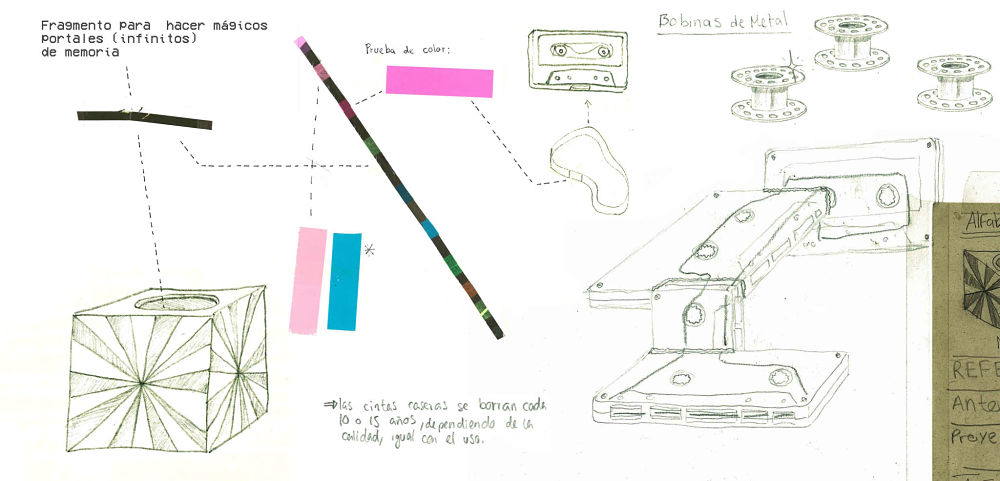 Fragmento para hacer mágicos
portales (infinitos)
de memoria
Prueba de color:
Bobinas de Metal
⇒las cintas caseras se borran cada
10 o 15 años, dependiendo de la
calidad, igual con el uso.
Alfab
REFE
Ante
Proye